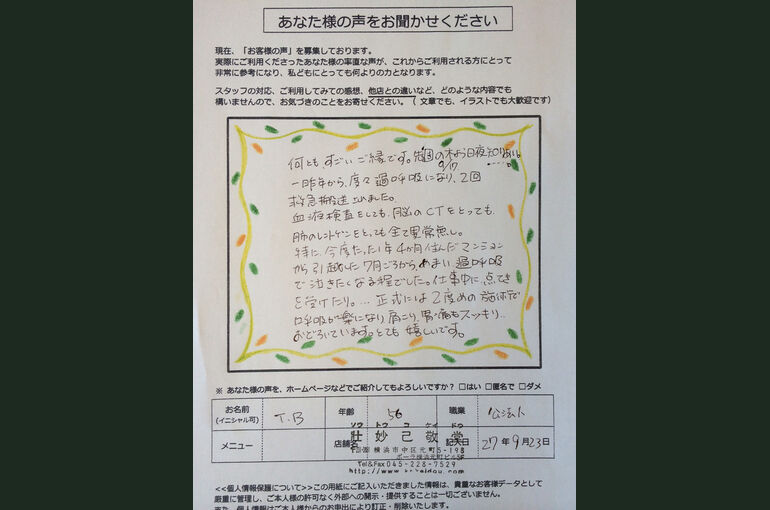 あなた様の声をお聞かせください
現在、「お客様の声」を募集しております。
実際にご利用くださったあなた様の率直な声が、これからご利用される方にとって
非常に参考になり、私どもにとっても何よりの力となります。
スタッフの対応、ご利用してみての感想、他店との違いなど、どのような内容でも
構いませんので、お気づきのことをお寄せください。（ 文章でも、イラストでも大歓迎です）
何とも すごい ご縁です。先週の木よう日
9/17
一昨年から、度々過呼吸になり、2回
救急搬送されました。
血液検査をしても、脳のCTをとっても、
肺のレントゲンをとっても 全て異常無し。
特に、今度たった1年4か月住んだマンション
から引越した7月ごろから、めまい、過呼吸
で泣きたくなる程でした。仕事中に点てき
を受けたり。... 正式には2度めの施術で
呼吸が楽になり肩こり、胃痛もスッキリ..
おどろいています。とても 嬉しいです。
※ あなた様の声を、ホームページなどでご紹介してもよろしいですか？ □はい □匿名で □ダメ
お名前 (イニシャル可) T.B 年齢 56 職業
ソウ トウ コ ケイ ドウ
メニュー 店舗名 壮妙己敬堂 記入日 27年9月23日
横浜市中区元町5-198
ポーラ横浜元町ビル5F
Tel&Fax045-228-7529
<<個人情報保護について>>この用紙にご記入いただきました情報は、貴重なお客様データとして
厳重に管理し、ご本人様の許可なく外部への開示・提供することは一切ございません。
また、個人情報はご本人様からのお申出により訂正・削除いたします。